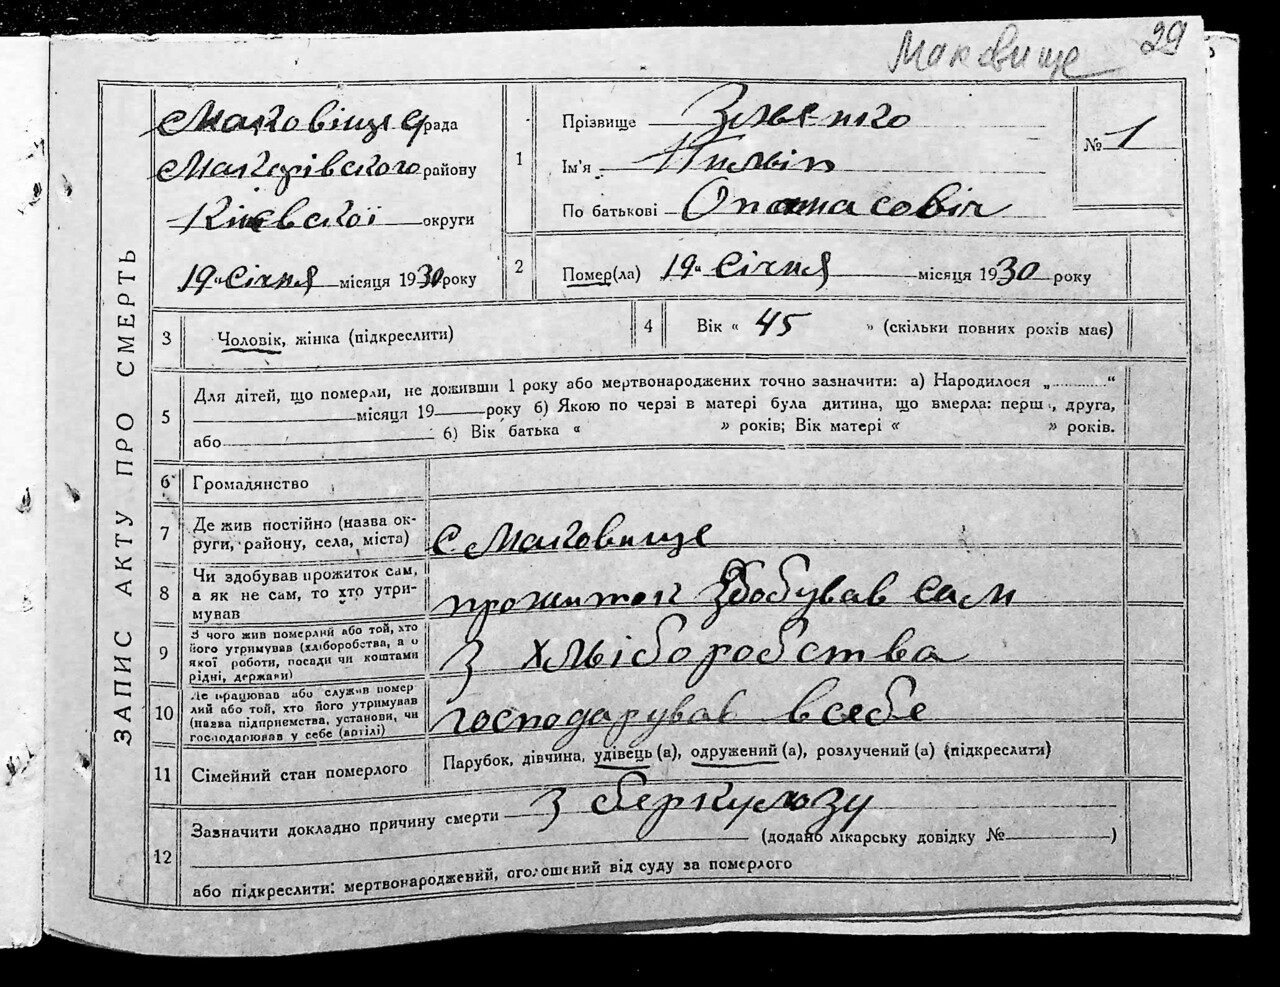 Маковище 29
ЗАПИС АКТУ ПРО СМЕРТЬ
Маковищ рада
Макарівского району
Києвскої округи
19 " Січня місяця 1930 року
1 Прізвище
Ім'я Пилип
По батькові Опанасовіч
№ 1
2 Помер(ла) 19 " Січня місяця 1930 року
3 Чоловік, жінка (підкреслити)
4 Вік « 45 » (скільки повних років має)
5 Для дітей, що померли, не доживши 1 року або мертвонароджених точно зазначити: а) Народилося „ “
місяця 19 року б) Якою по черзі в матері була дитина, що вмерла: перш , друга,
або б) Вік батька « » років; Вік матері « » років.
6 Громадянство
7 Де жив постійно (назва ок-
руги, району, села, міста) с Маковище
8 Чи здобував прожиток сам,
а як не сам, то хто утри-
мував прожиток здобував сам
9 З чого жив померлий або той, хто
його утримував (хліборобства, а о
якої роботи, посади чи коштами
рідні, держави) З хліборобства
10 Де працював або служив помер
лий або той, хто його утримував
(назва підприємства, установи, чи
господарював у себе (артілі) господарував всебе
11 Сімейний стан померлого Парубок, дівчина, удівець (а), одружений (а), розлучений (а) (підкреслити)
12 Зазначити докладно причину смерти З беркульозу
(додано лікарську довідку № )
або підкреслити: мертвонароджений, оголошений від суду за померлого